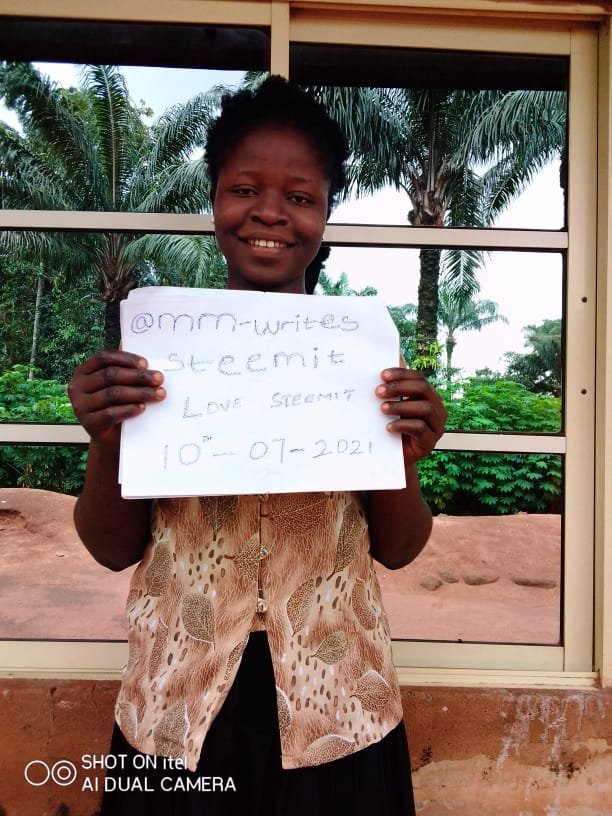 @mm-writes
steemit
LOVE STEEMIT
10TH - 07 - 2021
SHOT ON itel
AI DUAL CAMERA